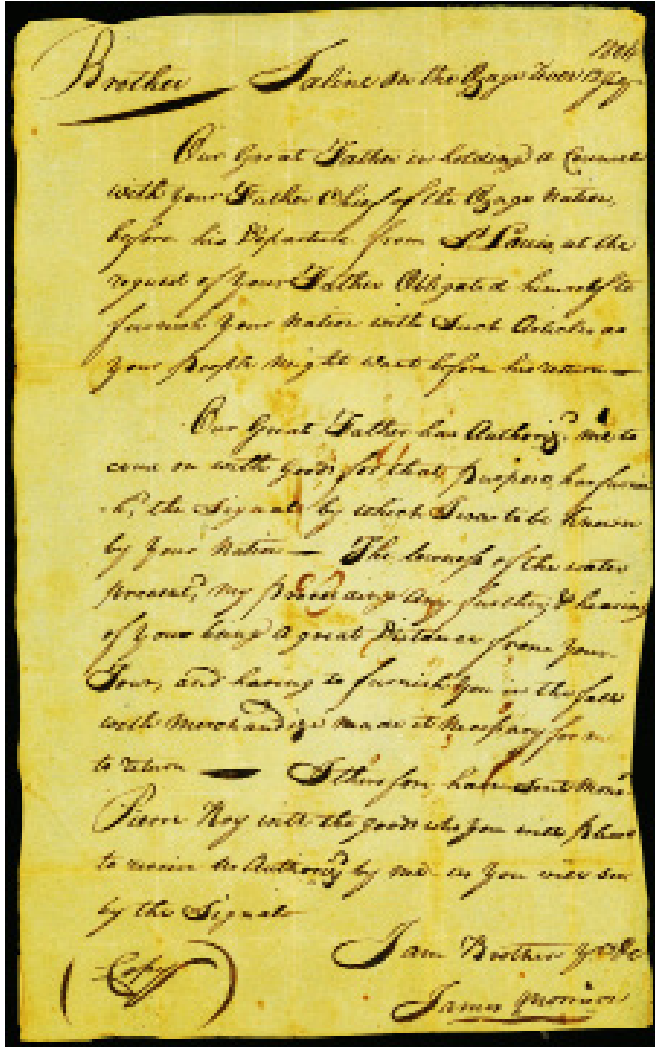 1806
Brother Saline on the Ozage River
Our Great Father in holding a Council
with your Father Chief of the Ozage Nation,
before his Departure from St. Louis, at the
request of your Father Obligated himself to
furnish your Nation with Such Articles as
your people might want before his return —
Our Great Father has Authorizd. me to
come on with goods for that purpose, has furnis
-hd. the Signal by which I was to be known
by your Nation — The lowness of the water
prevents my proceeding any further, & hearing
of your being a great Distance from your
Town, and having to furnish you in the fall
with Merchandize made it necessary for m
to return — I therefore have Sent Monsr.
Pierre Roy with the goods who you will please
to receive as Authorizd. by me as you will see
by the Signal
I am Brother
(Copy)
James Morrison